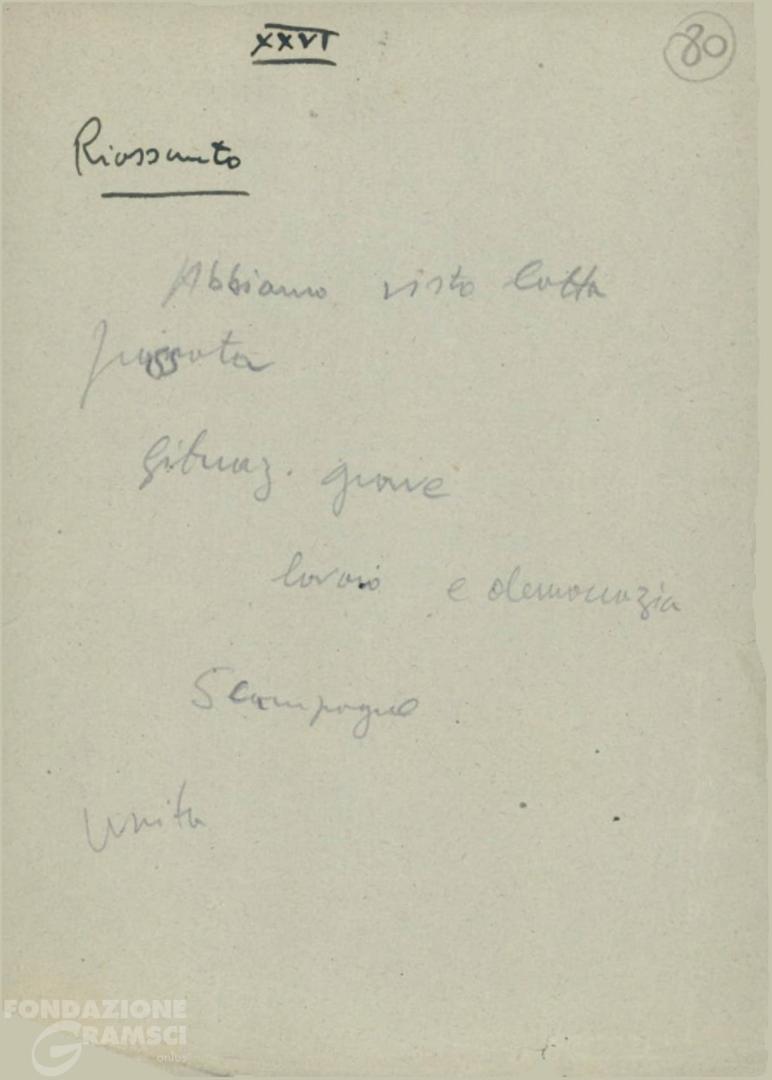 XXVI
80
Riassunto
Abbiamo visto lotta
passata
Situaz. grave
lavoro e democrazia
campagne
Unità
FONDAZIONE
GRAMSCI
onlus